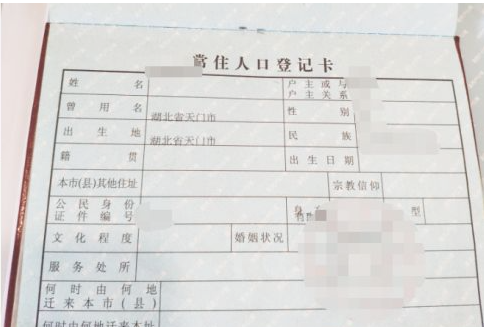 常住人口登记卡
姓名 户主或与户主关系
曾用名 湖北省天门市 性别
出生地 湖北省天门市 民族
籍贯 出生日期
本市(县)其他住址 宗教信仰
公民身份证件编号 身 型
文化程度 婚姻状况
服务处所
何时由何地迁来本市(县)
何时由何地迁来本址